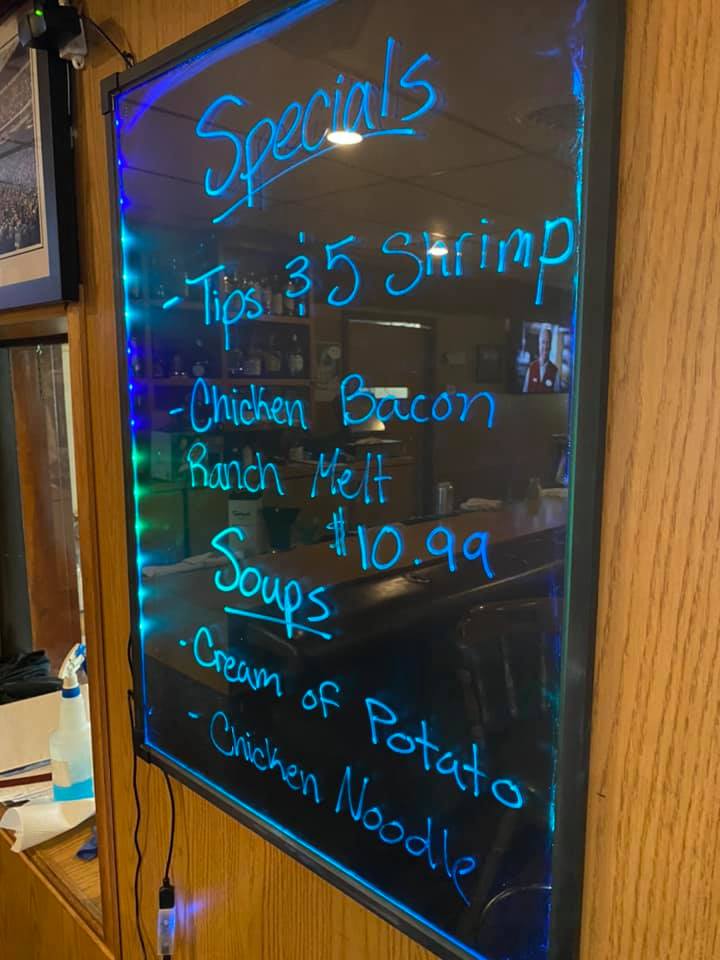 Specials
- Tips & 5 Shrimp
- Chicken Bacon
Ranch Melt
$10.99
Soups
- Cream of Potato
- Chicken Noodle